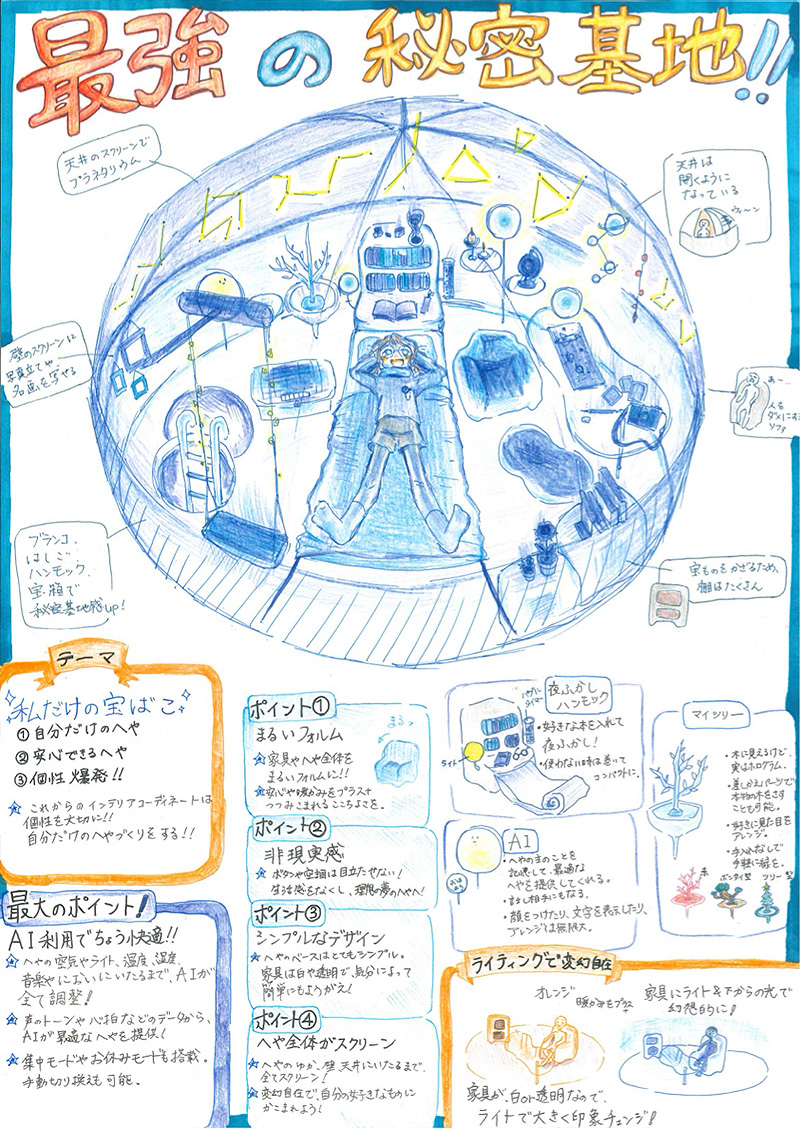 最強の秘密基地!!
天井のスクリーンで
プラネタリウム
天井は
開くように
なっている
ウィーン
壁のスクリーンは
名画を写せる
あー
人を
ダメにする
ソファ
ブランコ、
はしご、
ハンモック、
宝箱で
秘密基地感up!
宝ものをかざるため、
棚はたくさん
テーマ
私だけの宝ばこ
①自分だけのへや
②安心できるへや
③個性爆発!!
これからのインテリアコーディネートは
個性を大切に!!
自分だけのへやづくりをする!!
最大のポイント!
AI利用でちょう快適!!
へやの空気やライト、湿度、温度、
音楽やにおいにいたるまで、AIが
全て調整!
声のトーンや心拍などのデータから、
AIが最適なへやを提供!
集中モードやお休みモードも搭載。
手動切り換えも可能。
ポイント①
まるいフォルム
まるっ
家具やへや全体を
まるいフォルムに!!
安心や暖かみをプラス+
つつみこまれるここちよさを。
ポイント②
非現実感
ボタンや空調は目立たせない!
生活感をなくし、理想の夢のへやへ!
ポイント③
シンプルなデザイン
へやのベースはとてもシンプル。
家具は白や透明で、気分によって
簡単にもようがえ!
ポイント④
へや全体がスクリーン
へやのゆか、壁、天井にいたるまで、
全てスクリーン!
変幻自在で、自分の好きなものに
かこまれよう!
夜ふかし
ハンモック
ライト
・好きな本を入れて
夜ふかし!
・使わない時は巻いて
コンパクトに。
AI
・へやの主のことを
記憶して、最適な
へやを提供してくれる。
・話し相手にもなる。
・顔をつけたり、文字を表示したり、
アレンジは無限大。
マイツリー
・木に見えるけど、
実はホログラム。
・差しかえパーツで
本物の木をさす
ことも可能。
・好きに見た目を
アレンジ。
・手入れなしで
手軽に緑を。
赤
ボンサイ型
ツリー型
ライティングで変幻自在
オレンジ
暖かみをプラス
家具にライト&下からの光で
幻想的に!
家具が、白or透明なので、
ライトで大きく印象チェンジ!